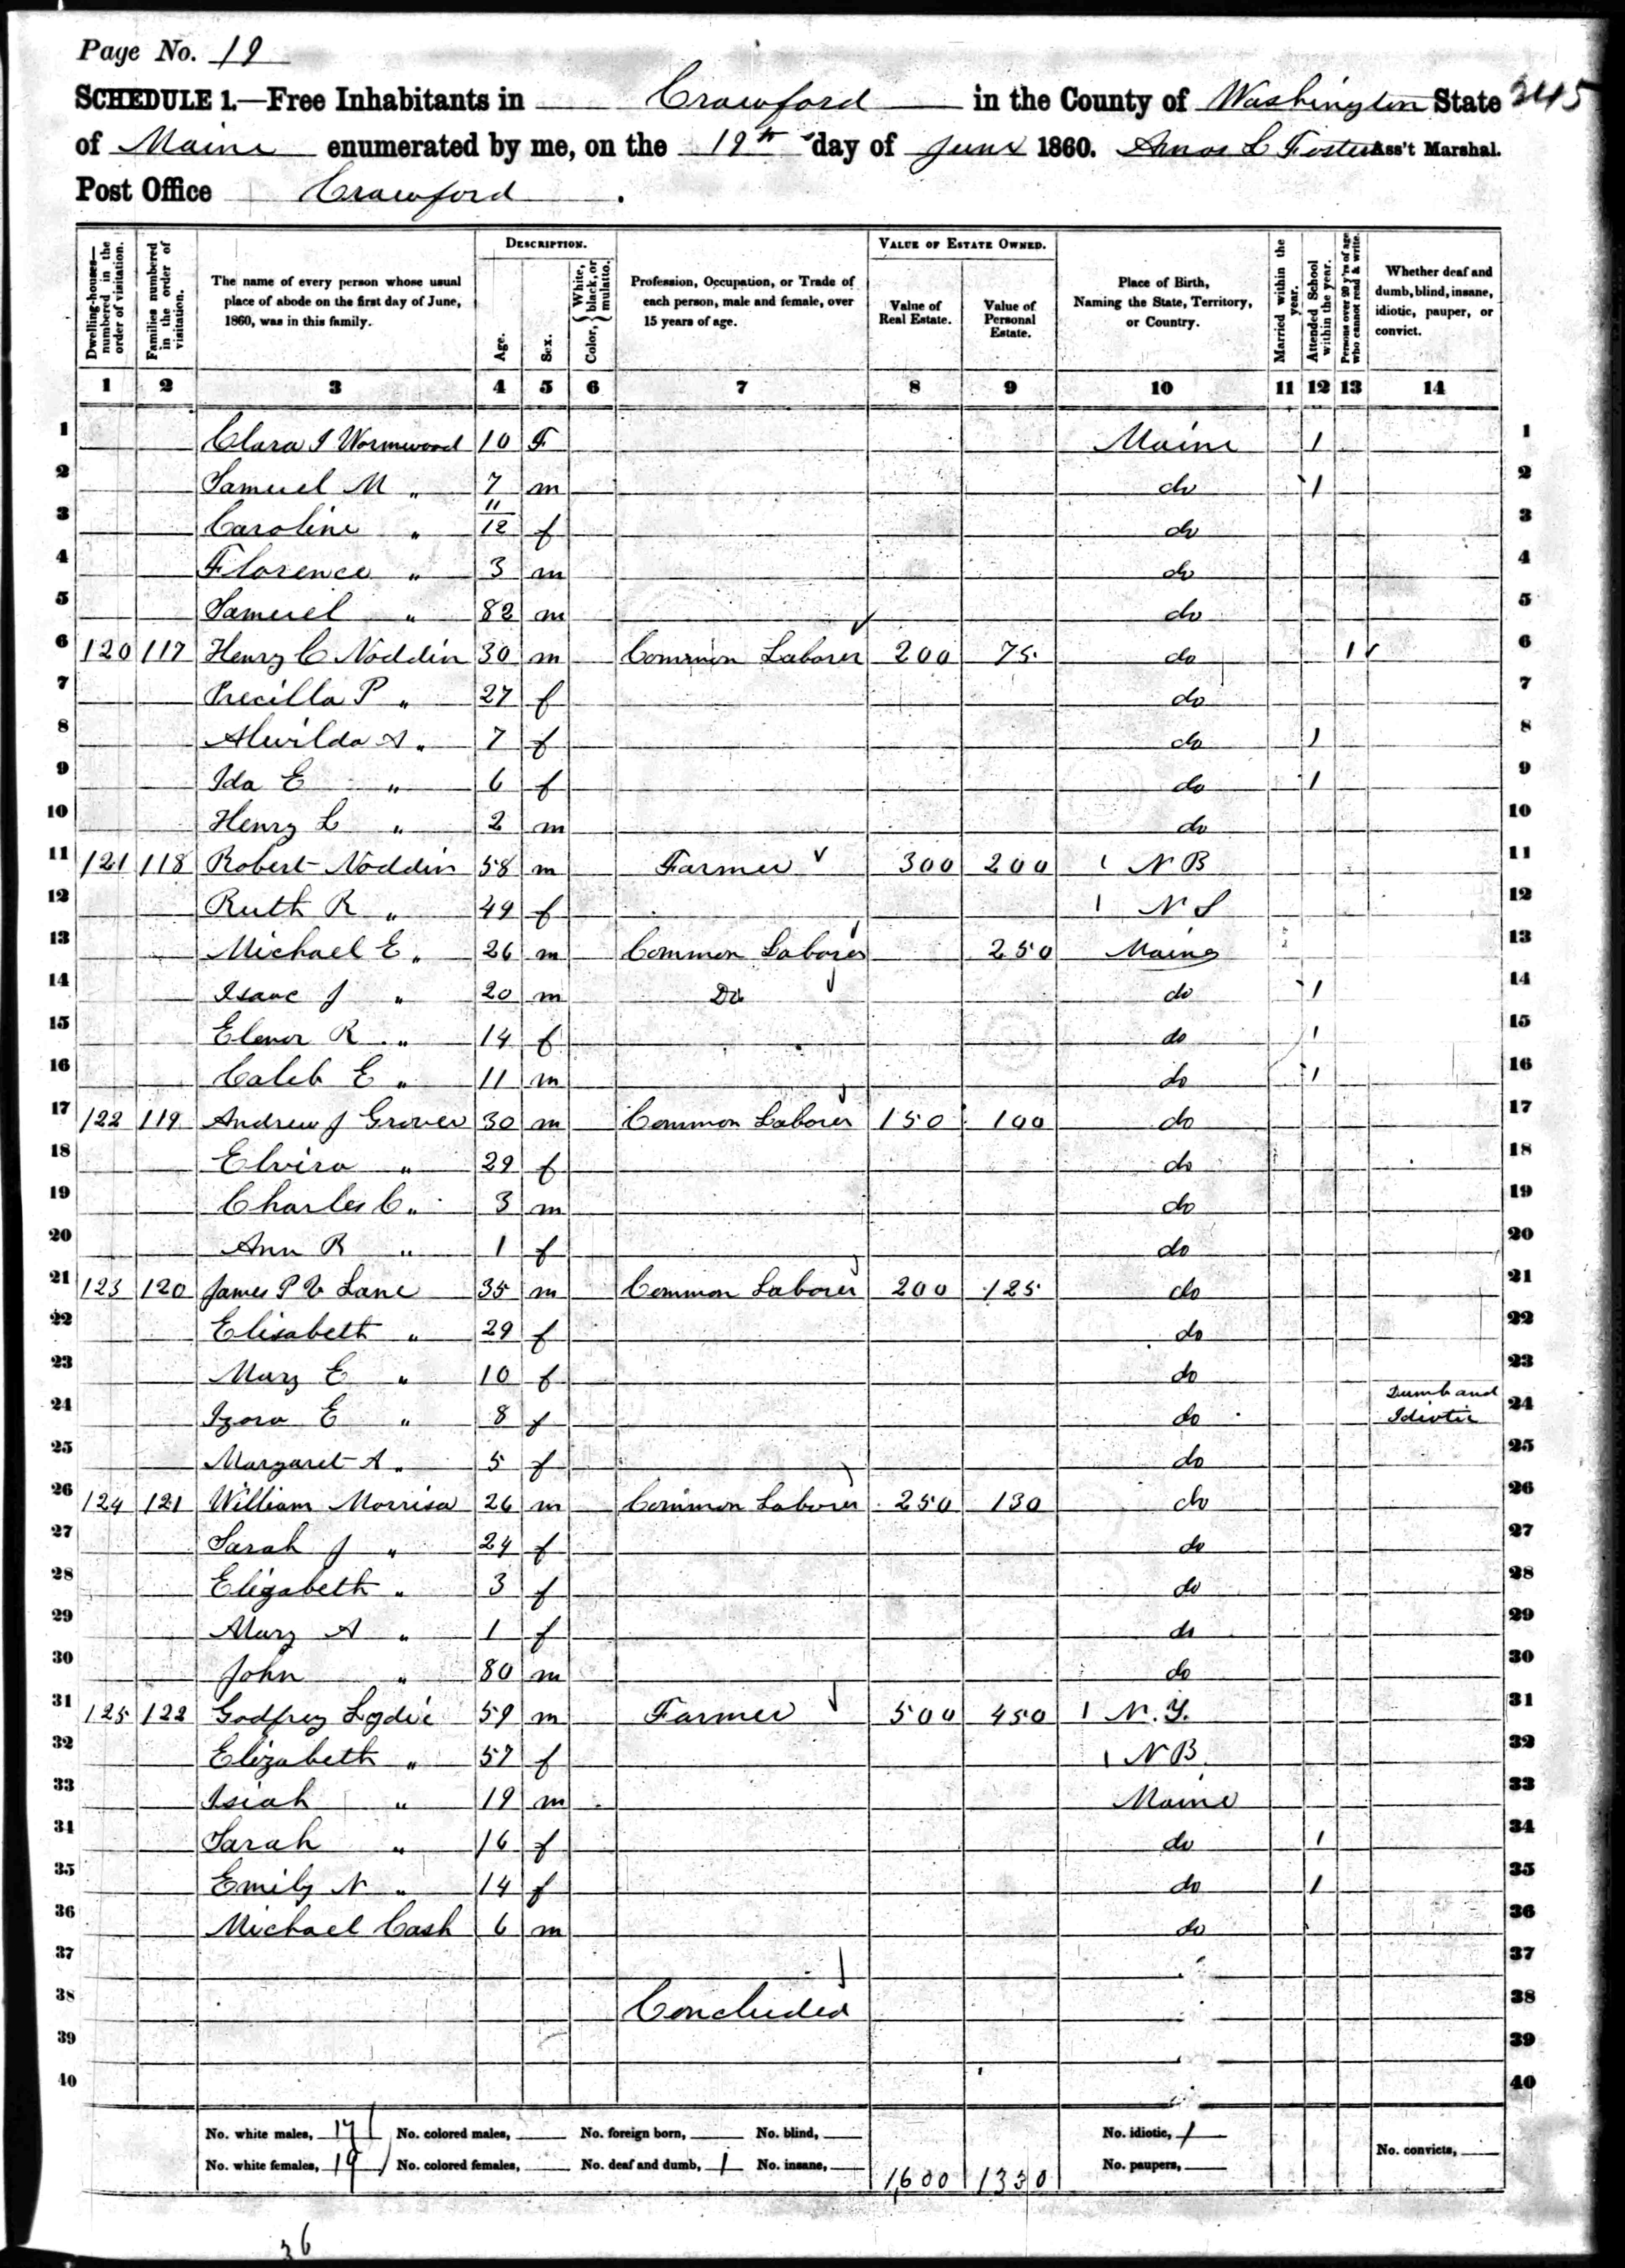 Page No. 19
SCHEDULE 1.—Free Inhabitants in Crawford in the County of Washington State 245
of Maine enumerated by me, on the 19th day of June 1860. Amos L Foster Ass't Marshal.
Post Office Crawford.
Dwelling-houses—numbered in the order of visitation. Families numbered in the order of visitation. The name of every person whose usual place of abode on the first day of June, 1860, was in this family. DESCRIPTION. Age. Sex. Color, { White, black, or mulatto. Profession, Occupation, or Trade of each person, male and female, over 15 years of age. VALUE OF ESTATE OWNED. Value of Real Estate. Value of Personal Estate. Place of Birth, Naming the State, Territory, or Country. Married within the year. Attended School within the year. Persons over 20 y'rs of age who cannot read & write. Whether deaf and dumb, blind, insane, idiotic, pauper, or convict.
1 2 3 4 5 6 7 8 9 10 11 12 13 14
1 Clara I Wormwood 10 F Maine 1 1
2 Samuel M " 7 m do 1 2
3 Caroline " 11/12 f do 3
4 Florence " 3 m do 4
5 Samuel " 82 m do 5
6 120 117 Henry C Noddin 30 m Common Laborer 200 75 do 1 6
7 Precilla P " 27 f do 7
8 Alwilda A " 7 f do 1 8
9 Ida E " 6 f do 1 9
10 Henry L " 2 m do 10
11 121 118 Robert Noddin 58 m Farmer 300 200 1 N B 11
12 Ruth R " 49 f 1 N S 12
13 Michael E " 26 m Common Laborer 250 Maine 13
14 Isaac J " 20 m Do do 1 14
15 Elenor R " 14 f do 1 15
16 Caleb E " 11 m do 1 16
17 122 119 Andrew J Grover 30 m Common Laborer 150 100 do 17
18 Elvira " 29 f do 18
19 Charles C " 3 m do 19
20 Ann R " 1 f do 20
21 123 120 James P V Lane 35 m Common Laborer 200 125 do 21
22 Elisabeth " 29 f do 22
23 Mary E " 10 f do 23
24 Izora E " 8 f do Dumb and Idiotic 24
25 Margaret A " 5 f do 25
26 124 121 William Morrison 26 m Common Laborer 250 130 do 26
27 Sarah J " 24 f do 27
28 Elizabeth " 3 f do 28
29 Mary A " 1 f do 29
30 John " 80 m do 30
31 125 122 Godfrey Lydic 59 m Farmer 500 450 1 N.Y. 31
32 Elizabeth " 57 f 1 N B 32
33 Isiah " 19 m Maine 33
34 Sarah " 16 f do 1 34
35 Emily N " 14 f do 1 35
36 Michael Cash 6 m do 36
37 37
38 Concluded 38
39 39
40 40
No. white males, 17 No. colored males, No. foreign born, No. blind, No. idiotic, 1 No. convicts,
No. white females, 19 No. colored females, No. deaf and dumb, 1 No. insane, 1,600 1330 No. paupers,
36